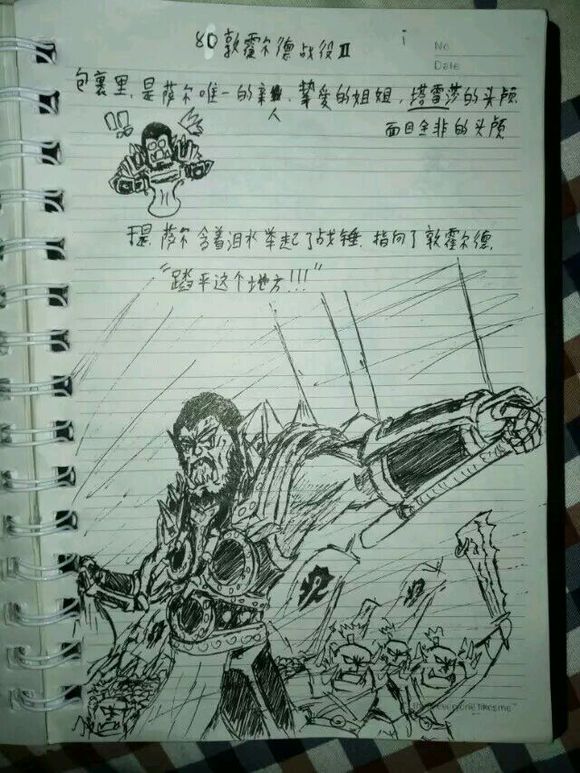 80 敦霍尔德战役Ⅱ
No
Date
包裹里,是萨尔唯一的亲人、挚爱的姐姐,塔蕾莎的头颅
面目全非的头颅
!!
于是,萨尔含着泪水举起了战锤,指向了敦霍尔德,
“踏平这个地方!!!”